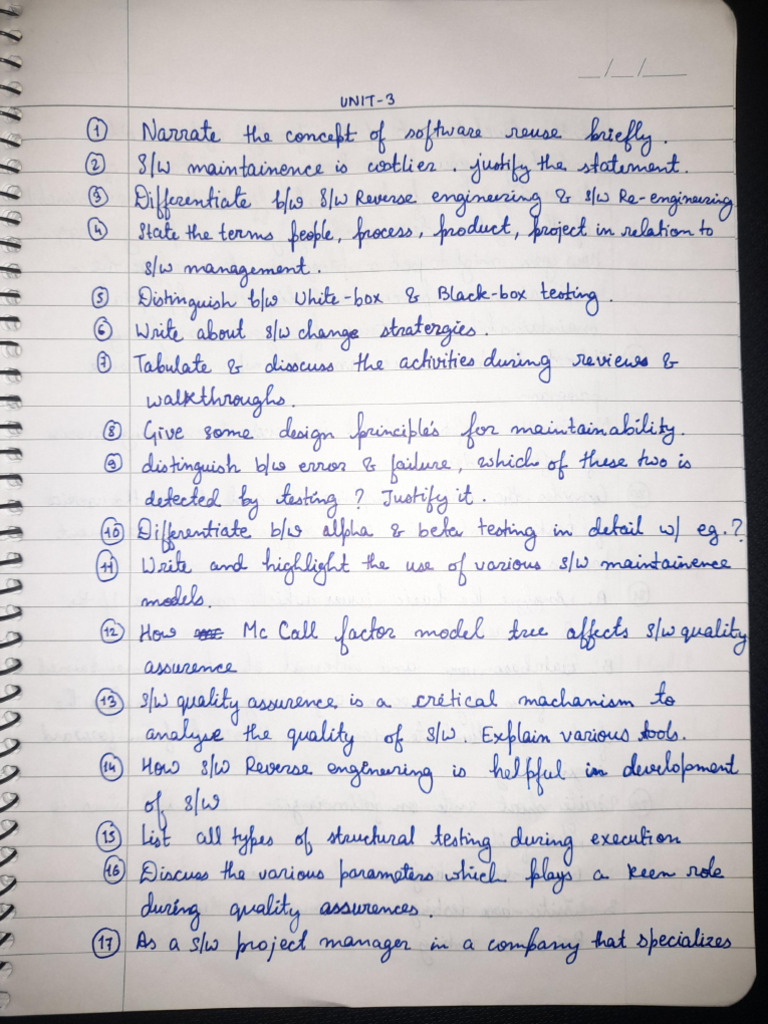 __/__/____
UNIT-3
① Narrate the concept of software reuse briefly.
② S/W maintainence is costlier. justify the statement.
③ Differentiate b/w S/W Reverse engineering & S/W Re-engineering
④ State the terms people, process, product, project in relation to
s/w management.
⑤ Distinguish b/w White-box & Black-box testing.
⑥ Write about s/w change stratergies.
⑦ Tabulate & disscuss the activities during reviews &
walkthroughs.
⑧ Give some design principles for maintainability.
⑨ distinguish b/w error & failure, which of these two is
detected by testing? Justify it.
⑩ Differentiate b/w alpha & beta testing in detail w/ eg.?
⑪ Write and highlight the use of various s/w maintainence
models.
⑫ How Mc Call factor model tree affects s/w quality
assurence
⑬ S/W quality assurence is a critical machanism to
analyse the quality of S/W. Explain various tools.
⑭ How S/W Reverse engineering is helpful in development
of S/W
⑮ List all types of structural testing during execution
⑯ Discuss the various parameters which plays a keen role
during quality assurences.
⑰ As a S/W project manager in a company that specializes